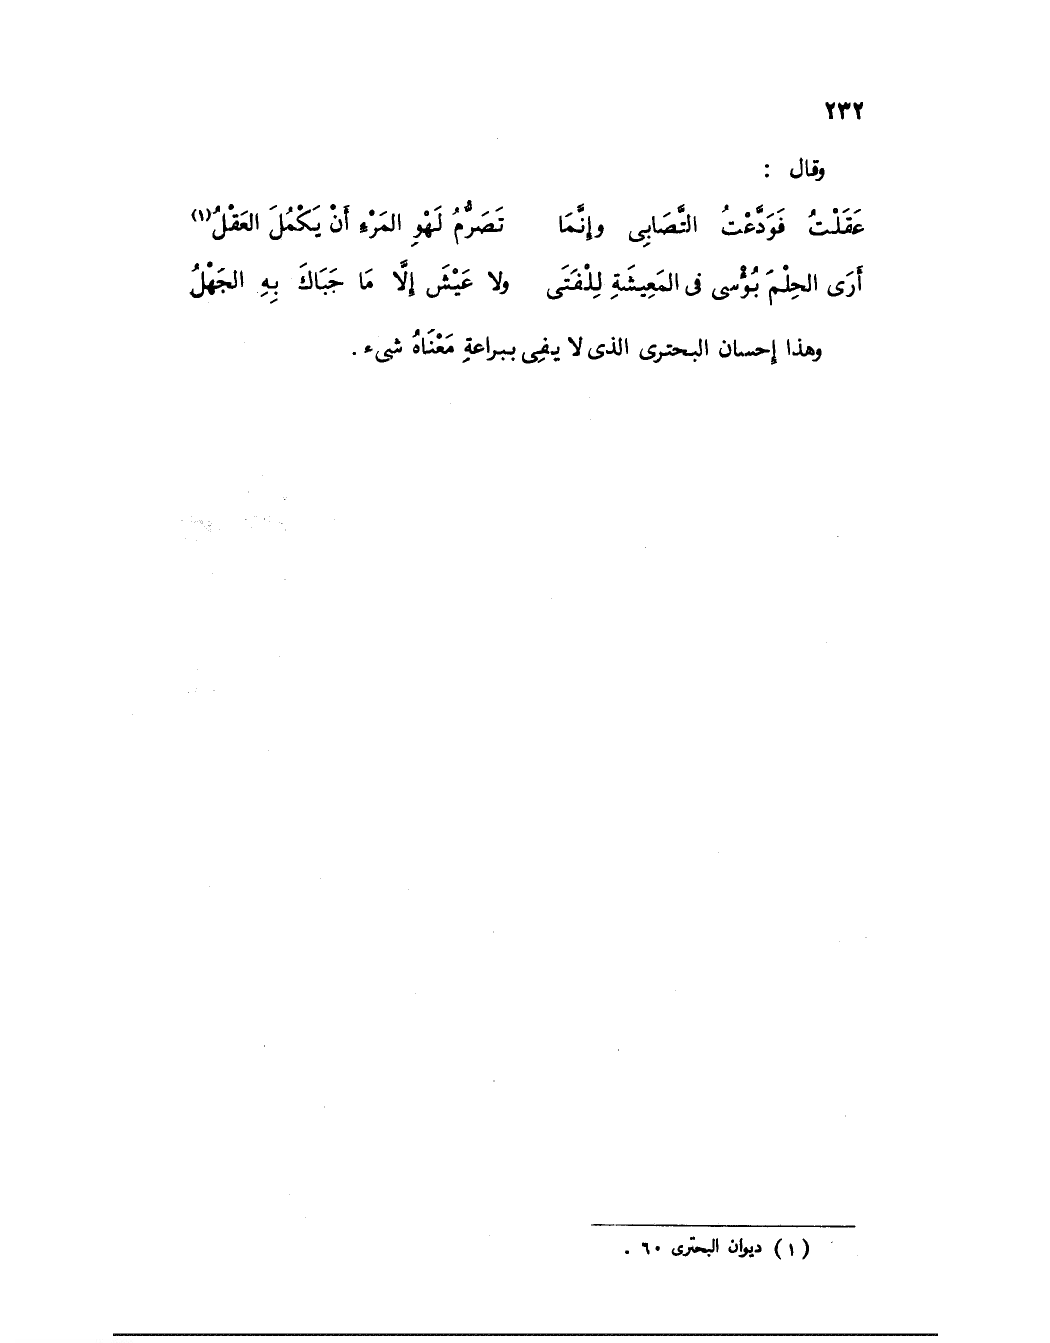 ٢٣٢
وقال :
عَقَلْتُ فَوَدَّعْتُ التَّصَابِى وإِنَّمَا تَصَرُّمُ لَهْوِ المَرْءِ أَنْ يَكْمُلَ العَقْلُ(١)
أَرَى الحِلْمَ بُؤْسى فى المَعِيشَةِ لِلْفَتَى ولا عَيْشَ إِلَّا مَا حَبَاكَ بِهِ الجَهْلُ
وهذا إحسان البحترى الذى لا يفِى ببراعةِ مَعْنَاهُ شىء .
(١) ديوان البحترى ٦٠ .